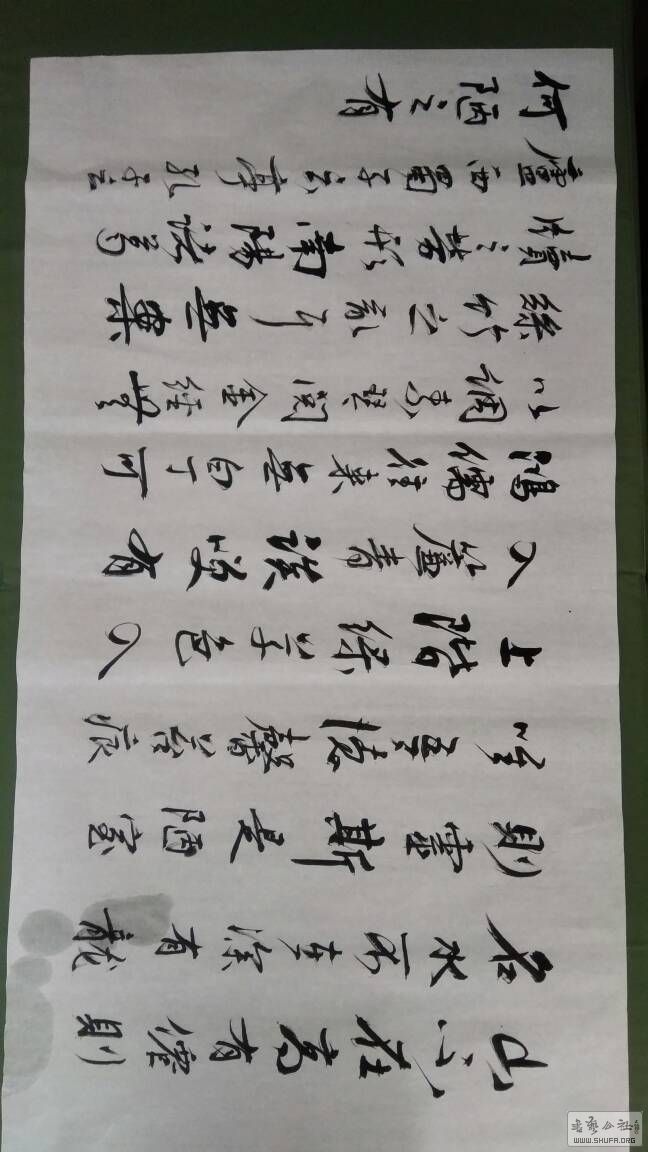 山不在高有僊則
名水不在深有龍
則靈斯是陋室
唯吾德馨苔痕
上階綠草色入
入簾青談笑有
鴻儒往來無白丁可
以調素琴閱金經無
絲竹之亂耳無案
牘之勞形南陽諸葛
廬西蜀子云亭孔子云
何陋之有
书艺公社
WWW.SHUFA.ORG